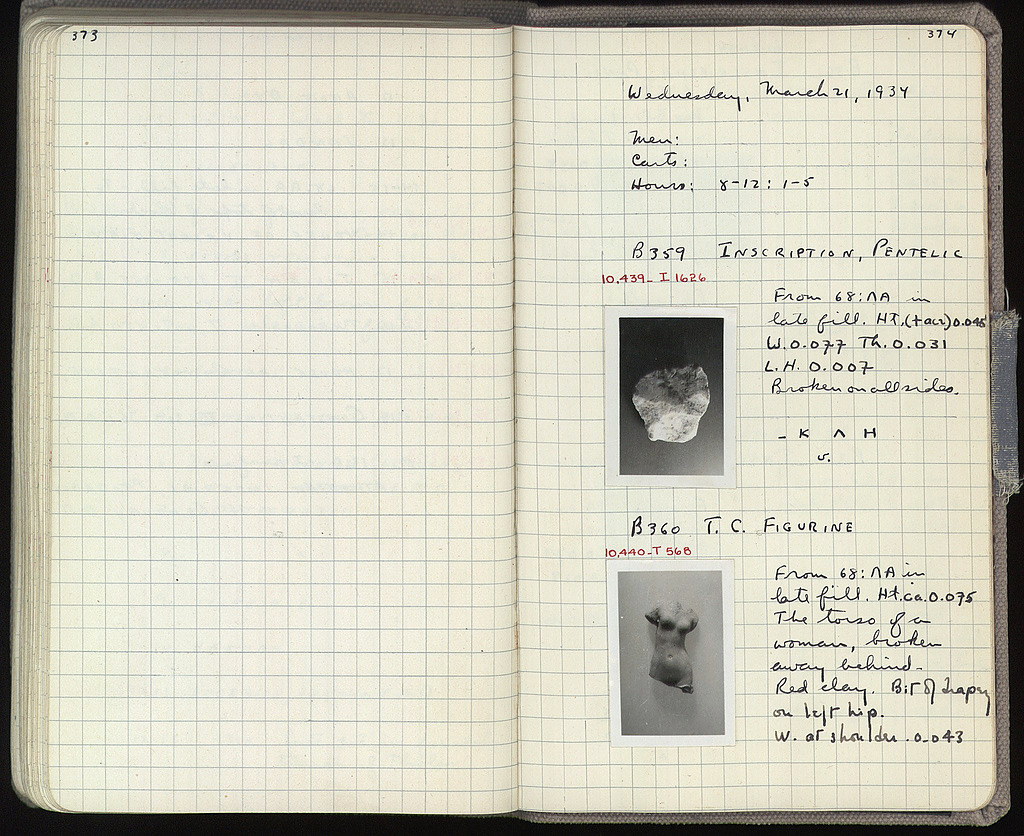 373
374
Wednesday, March 21, 1934
Men:
Carts:
Hours: 8-12: 1-5
B359 INSCRIPTION, PENTELIC
10,439- I 1626
From 68:ΛΑ in
late fill. Ht.(+acr) 0.045
W. 0.077 Th. 0.031
L.H. 0.007
Broken on all sides.
- K Λ H
v.
B360 T. C. FIGURINE
10,440-T 568
From 68:ΛΑ in
late fill. Ht. ca. 0.075
The torso of a
woman, broken
away behind.
Red clay. Bit of drapery
on left hip.
W. at shoulder. 0.043